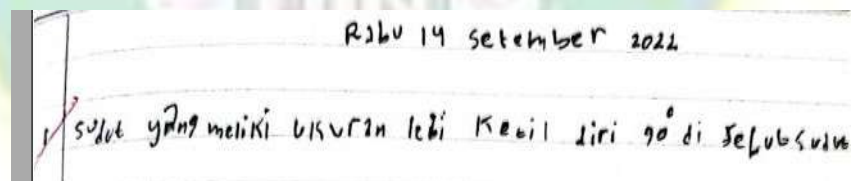 Rabu 14 setember 2022
1 sudut yang meliki ukuran lebi Kecil diri 90° di sebut sudut